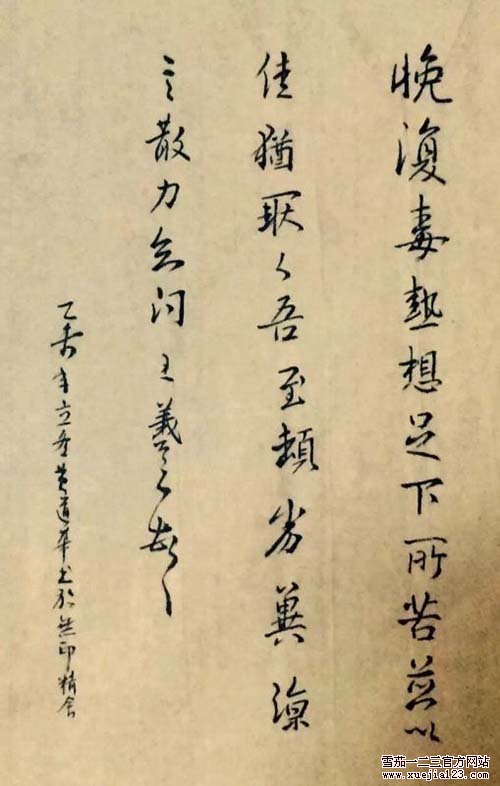 晚復毒熱想足下所苦並以
佳猶耿々吾至頓劣冀涼
言散力知问王羲之頓首
年立黄道華书於無印精舍
雪茄一二三官方网站
www.xuejie123.com